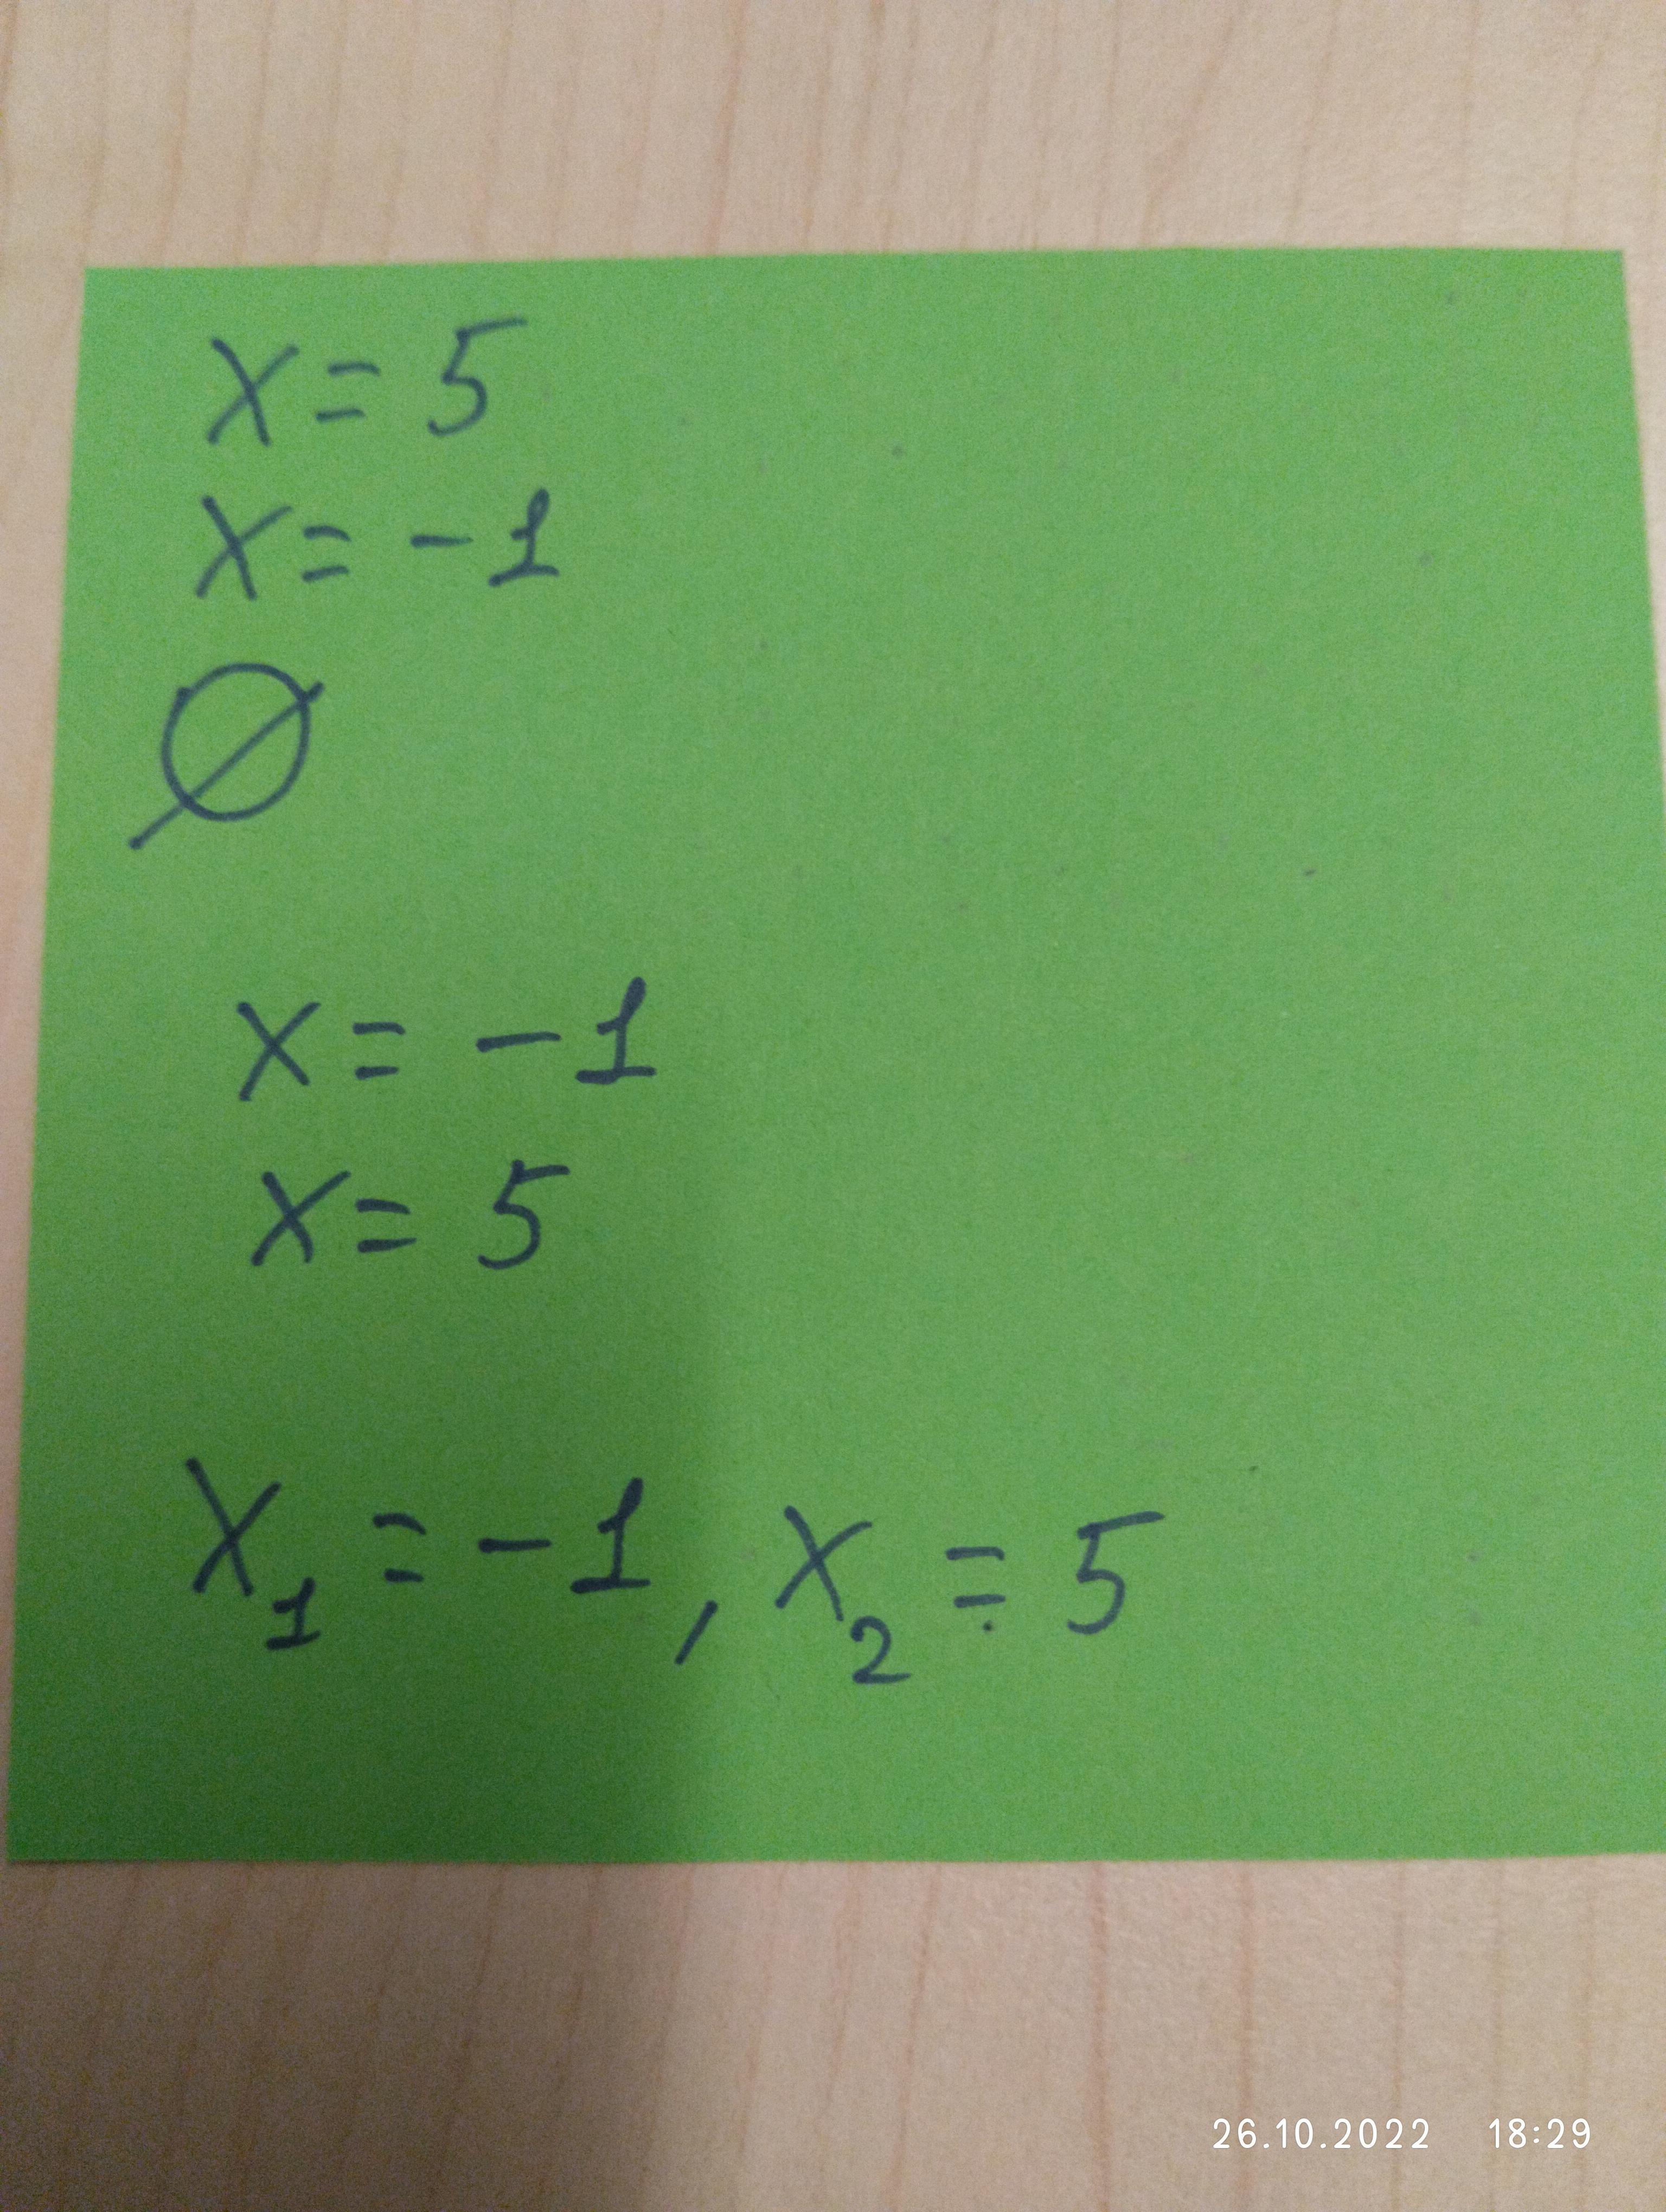 x = 5
x = -1
∅
x = -1
x = 5
x₁ = -1, x₂ = 5
26.10.2022 18:29